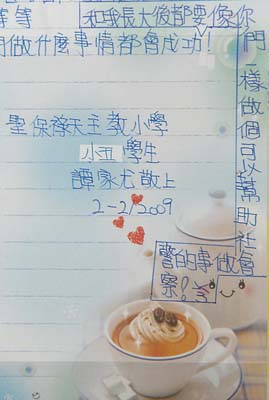 等等 和我長大後都要像你
們一樣做個可以幫助社
會做事的警
察!
做什麼事情都會成功!
聖保祿天主教小學
小五 學生
譚家尤敬上
2-2/2009